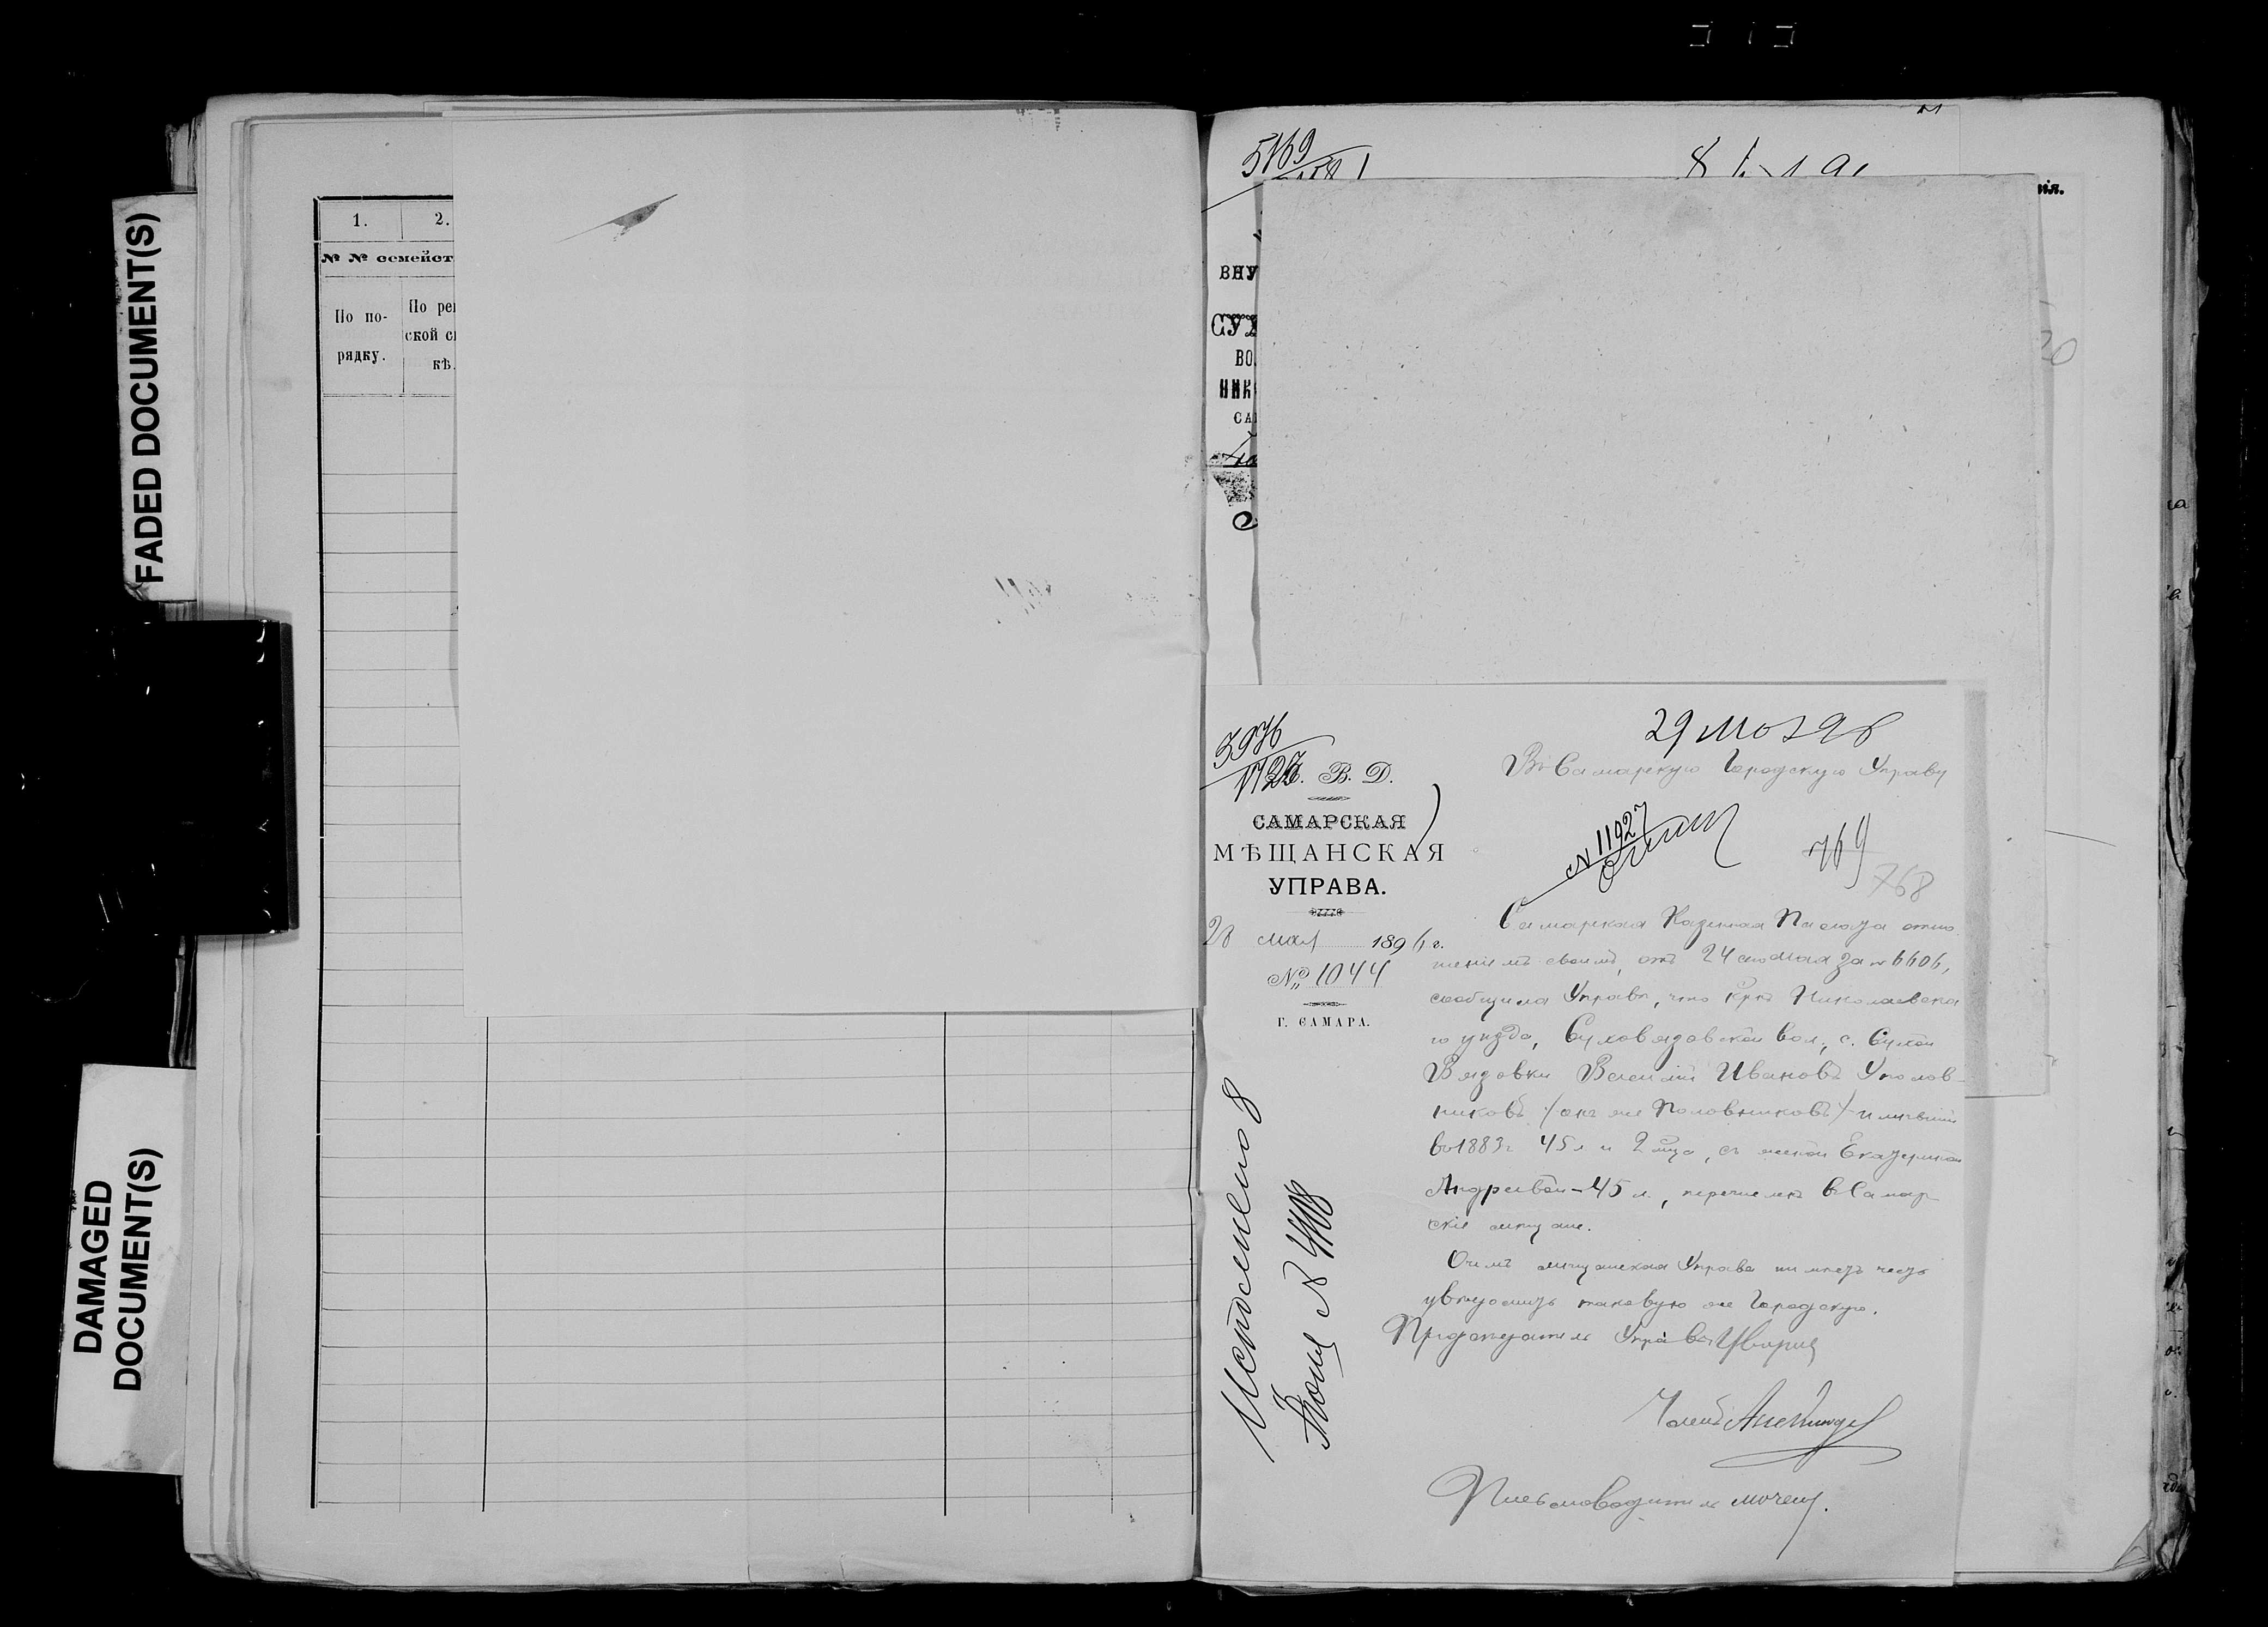 FADED DOCUMENT(S)
DAMAGED
DOCUMENT(S)
1. 2.
№ № семейст
По по-
рядку.
По ре
ской с
кѣ.
5169
ВНУ
СУХ
ВО
НИК
СА
нія.
3976
В. Д.
САМАРСКАЯ
МѢЩАНСКАЯ
УПРАВА.
28 мая 1896 г.
№ 1044
Г. САМАРА.
29 мая 96
Въ Самарскую Городскую Управу
№ 11927
769
768
Самарская Казенная Палата отно
шеніемъ своимъ, отъ 24 сего мая за № 6606,
сообщила Управѣ, что кр-нъ Николаевска
го уѣзда, Суховязовской вол., с. Сухой
Вязовки Василій Ивановъ Уполов-
никовъ (онъ же Половниковъ) имѣвшій
въ 1883 г 45 л и 2 мца, съ женой Екатериной
Андреевой - 45 л., перечисленъ въ Самар-
скіе мѣщане.
О чемъ мѣщанская Управа имѣетъ честь
увѣдомить таковую же Городскую.
Предсѣдатель Управы
Членъ
Письмоводитель
Исполнено 8
Іюня № 4408